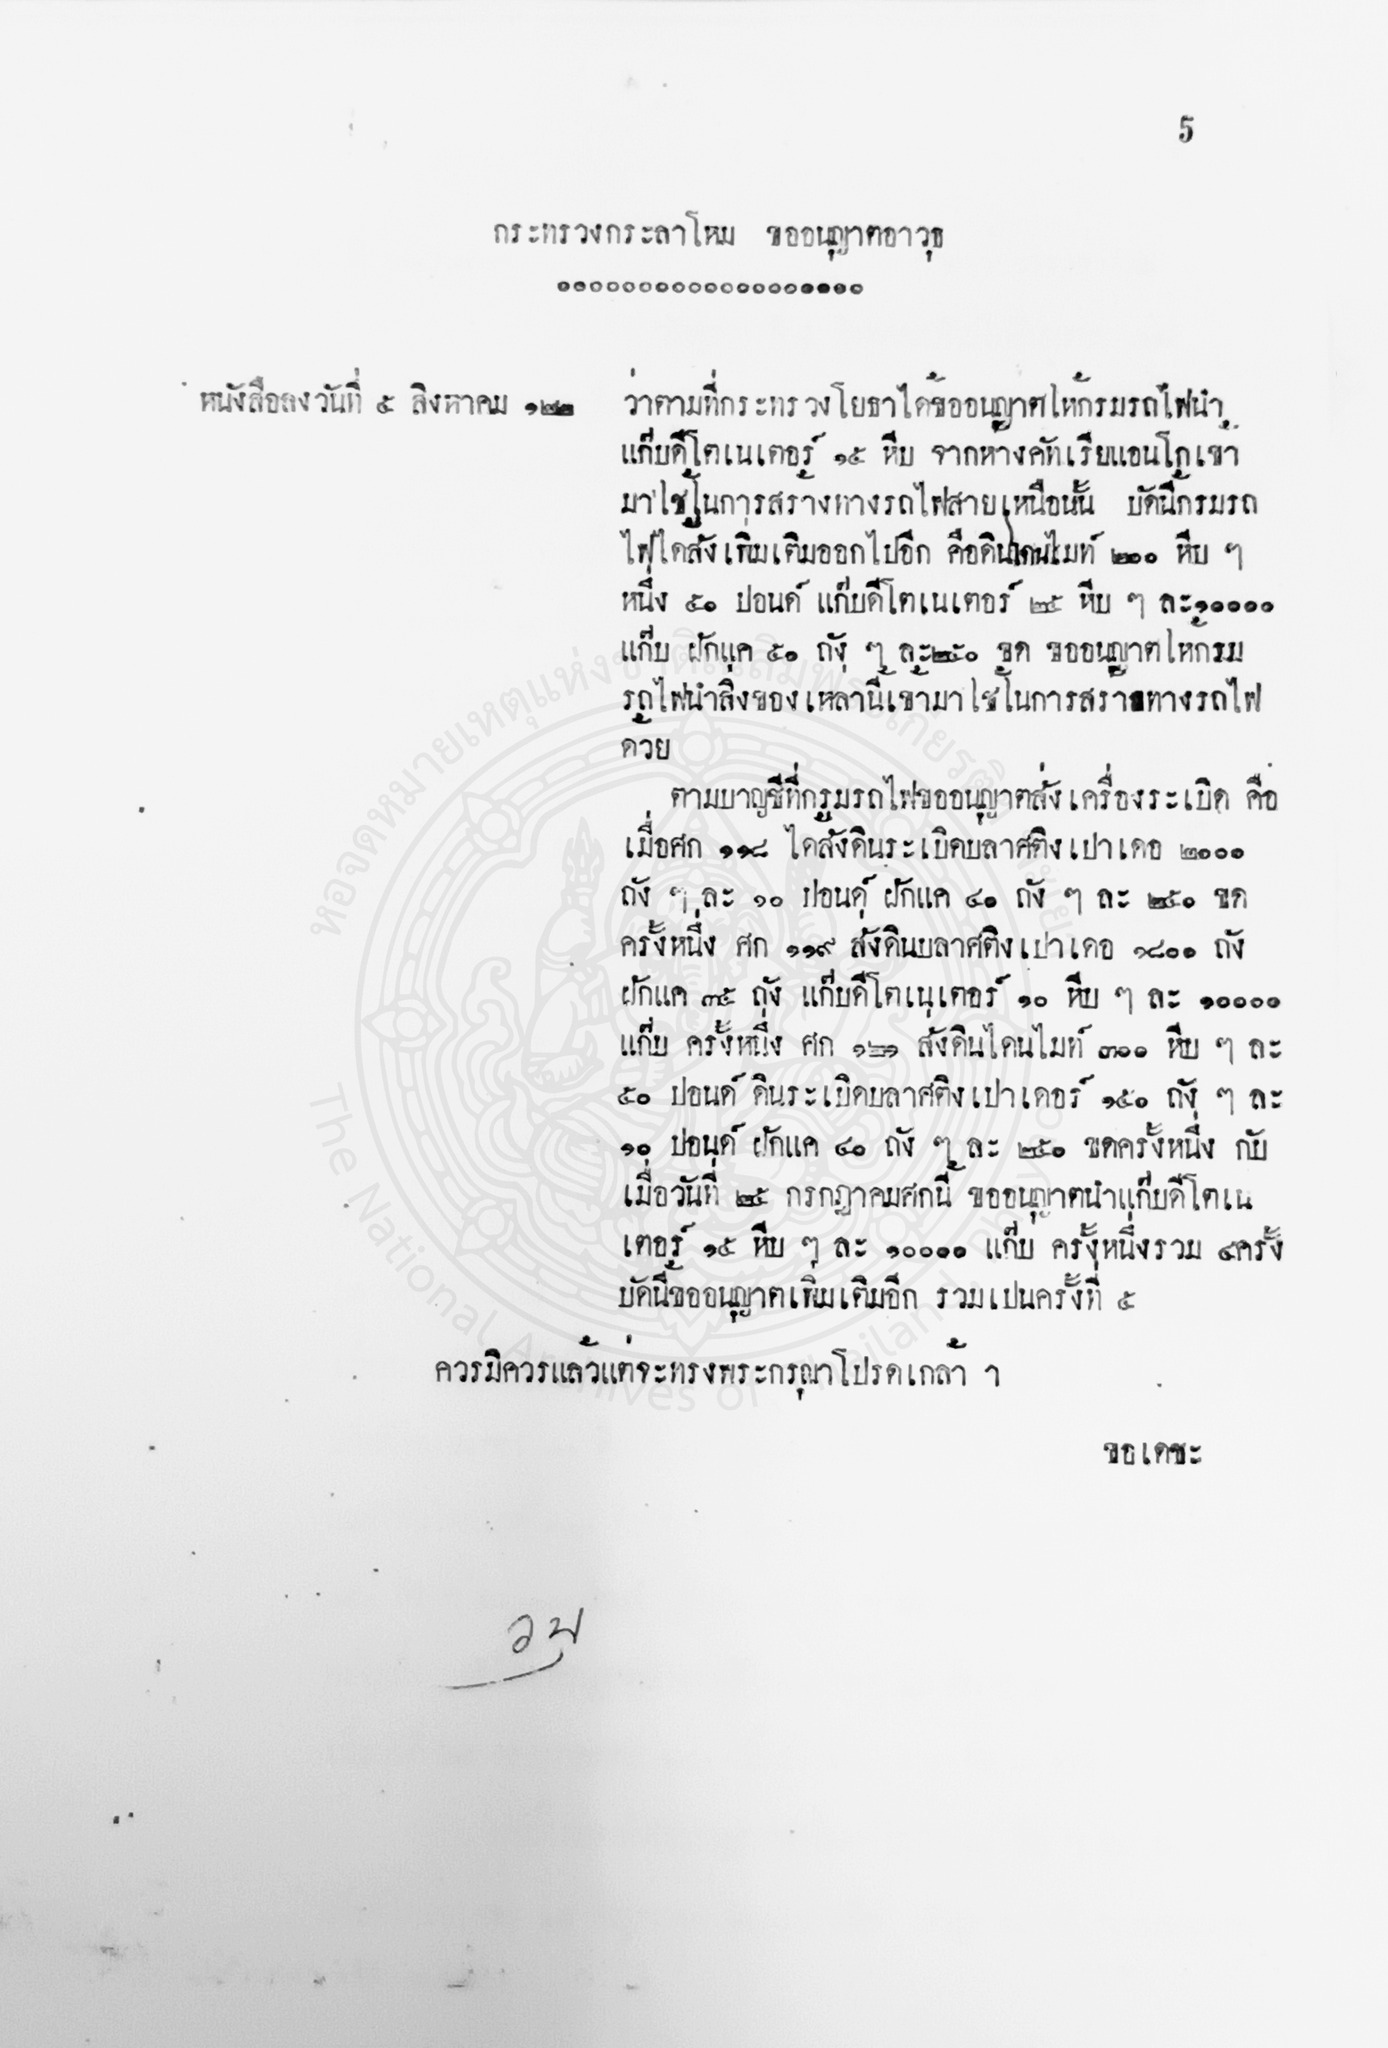 5
กระทรวงกระลาโหม ขออนุญาตอาวุธ
หนังสือลงวันที่ ๕ สิงหาคม ๑๒๒ ว่าตามที่กระทรวงโยธาได้ขออนุญาตให้กรมรถไฟนำ
แก๊บดีโตเนเตอร์ ๑๕ หีบ จากห้างคัทเรียแอนโกเข้า
มาใช้ในการสร้างทางรถไฟสายเหนือนั้น บัดนี้กรมรถ
ไฟได้สั่งเพิ่มเติมออกไปอีก คือดินไดนไมท์ ๒๐๐ หีบ ๆ
หนึ่ง ๕๐ ปอนด์ แก๊บดีโตเนเตอร์ ๒๕ หีบ ๆ ละ๑๐๐๐๐
แก๊บ ฝักแค ๕๐ ถัง ๆ ละ๒๕๐ ขด ขออนุญาตให้กรม
รถไฟนำสิ่งของเหล่านี้เข้ามาใช้ในการสร้างทางรถไฟ
ด้วย
ตามบาญชีที่กรมรถไฟขออนุญาตสั่งเครื่องระเบิด คือ
เมื่อศก ๑๑๘ ได้สั่งดินระเบิดบลาศติงเปาเดอ ๒๐๐๐
ถัง ๆ ละ ๑๐ ปอนด์ ฝักแค ๔๐ ถัง ๆ ละ ๒๕๐ ขด
ครั้งหนึ่ง ศก ๑๑๙ สั่งดินบลาศติงเปาเดอ ๑๘๐๐ ถัง
ฝักแค ๓๕ ถัง แก๊บดีโตเนเตอร์ ๑๐ หีบ ๆ ละ ๑๐๐๐๐
แก๊บ ครั้งหนึ่ง ศก ๑๒๑ สั่งดินไดนไมท์ ๓๐๐ หีบ ๆ ละ
๕๐ ปอนด์ ดินระเบิดบลาศติงเปาเดอร์ ๑๕๐ ถัง ๆ ละ
๑๐ ปอนด์ ฝักแค ๔๐ ถัง ๆ ละ ๒๕๐ ขดครั้งหนึ่ง กับ
เมื่อวันที่ ๒๕ กรกฎาคมศกนี้ ขออนุญาตนำแก๊บดีโตเน
เตอร์ ๑๕ หีบ ๆ ละ ๑๐๐๐๐ แก๊บ ครั้งหนึ่งรวม ๔ครั้ง
บัดนี้ขออนุญาตเพิ่มเติมอีก รวมเปนครั้งที่ ๕
ควรมิควรแล้วแต่จะทรงพระกรุณาโปรดเกล้า ฯ
ขอเดชะ
หอจดหมายเหตุแห่งชาติเฉลิมพระเกียรติ
The National Archives of Thailand